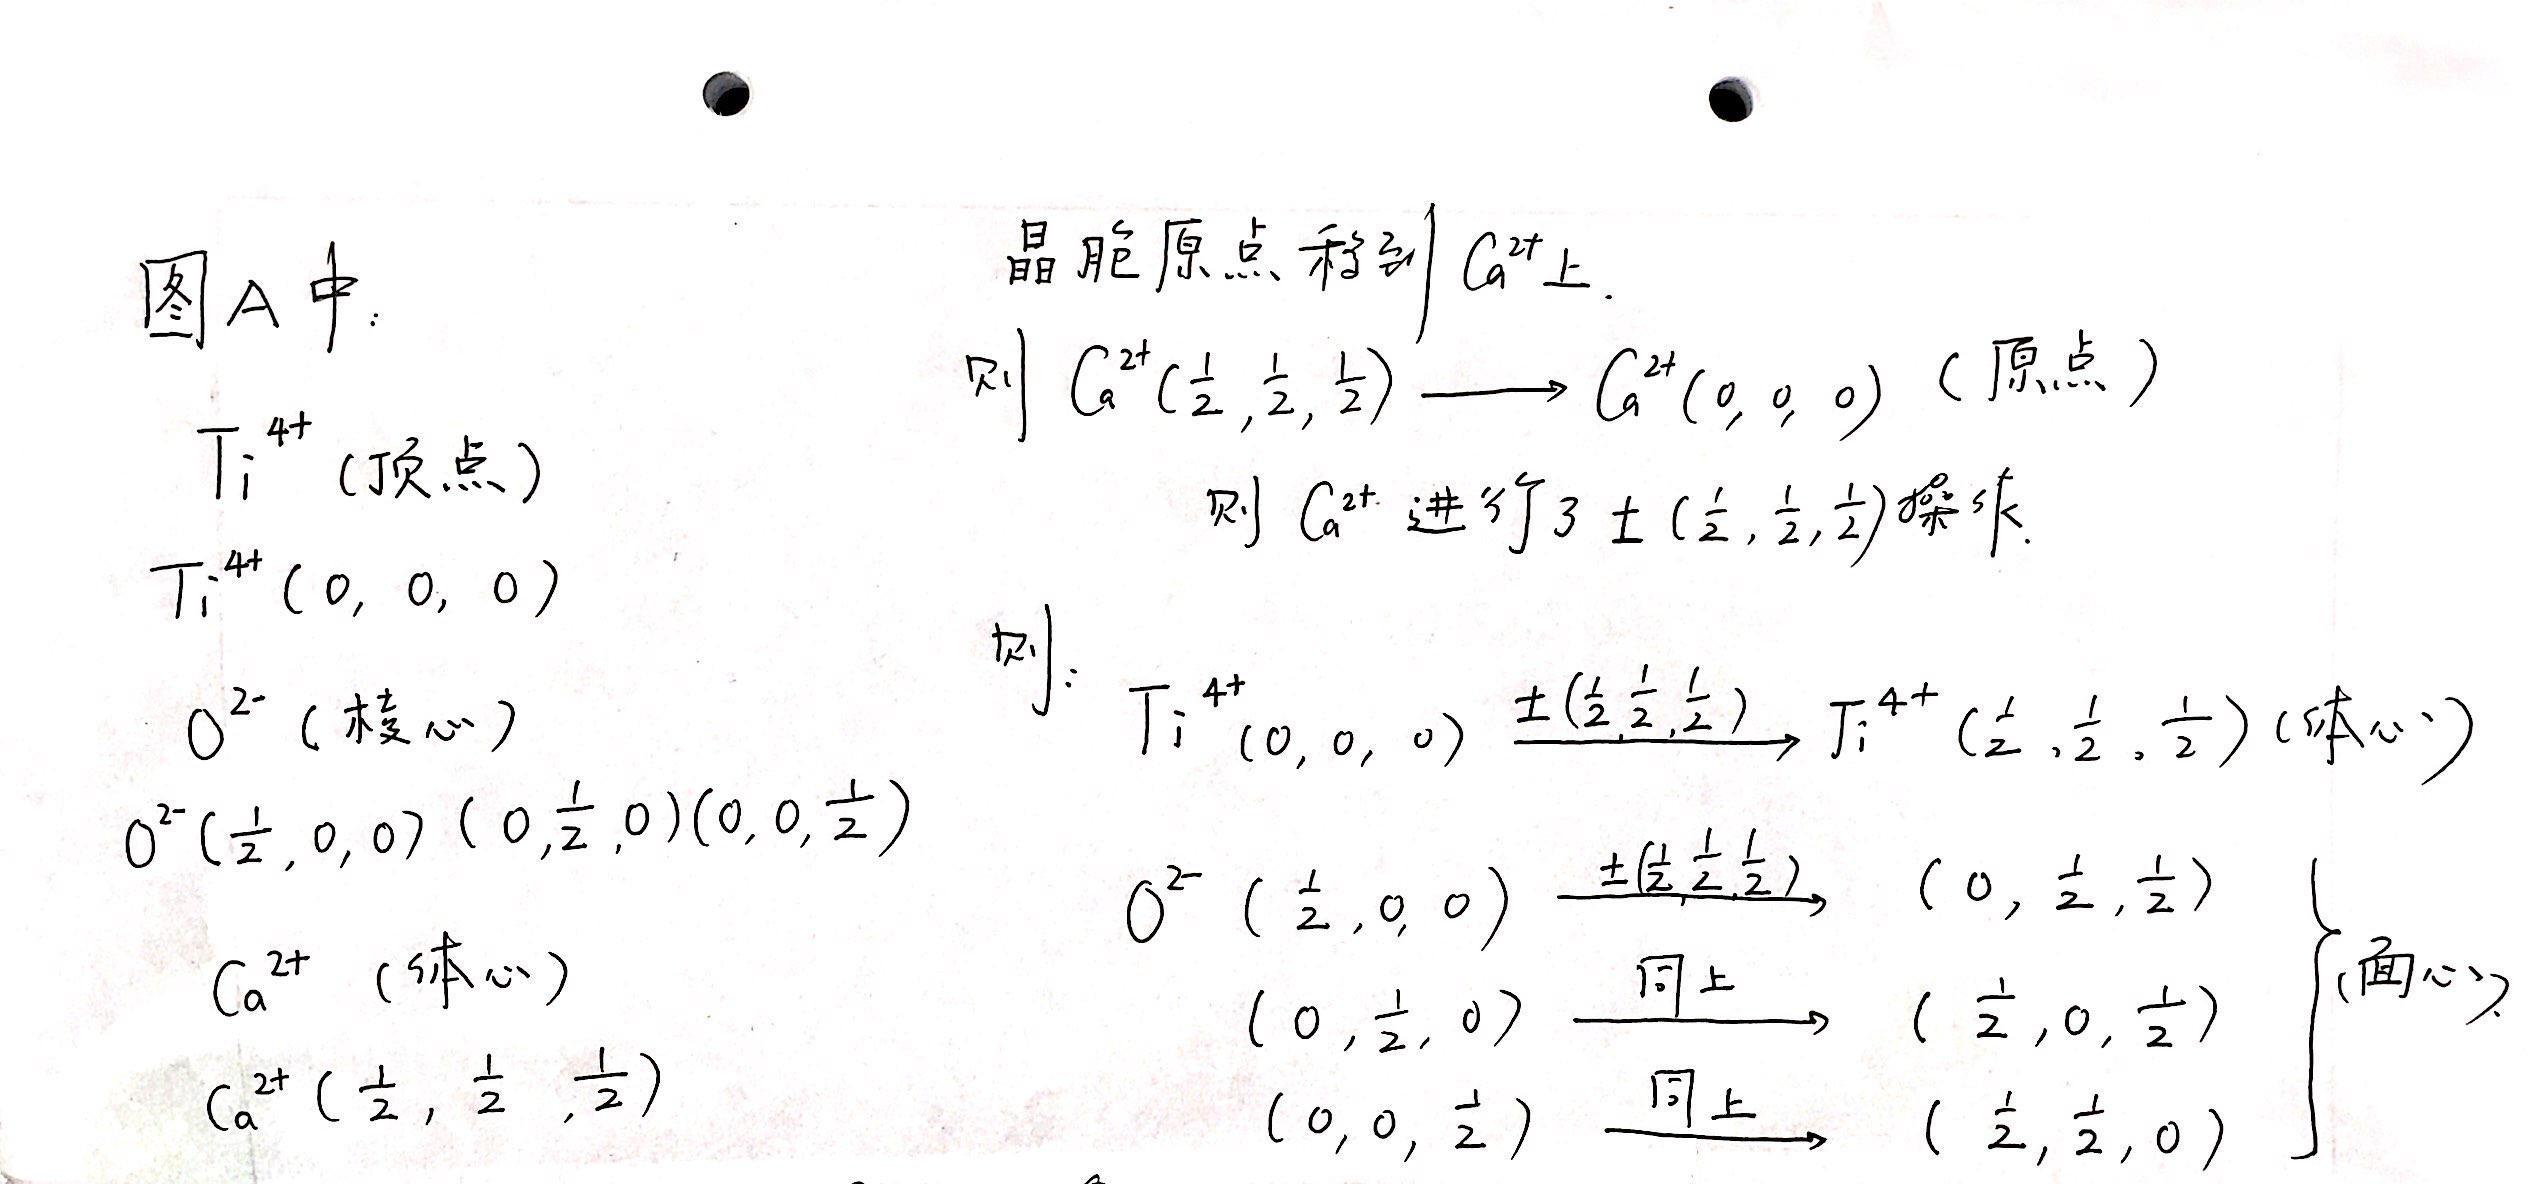 图A中:
Ti⁴⁺(顶点)
Ti⁴⁺(0, 0, 0)
O²⁻(棱心)
O²⁻(1/2, 0, 0) (0, 1/2, 0)(0, 0, 1/2)
Ca²⁺ (体心)
Ca²⁺(1/2, 1/2, 1/2)
晶胞原点移到Ca²⁺上.
则 Ca²⁺(1/2, 1/2, 1/2) ⟶ Ca²⁺(0, 0, 0) (原点)
则 Ca²⁺ 进行了 ±(1/2, 1/2, 1/2)操作.
则:
Ti⁴⁺(0, 0, 0) ±(1/2, 1/2, 1/2)⟶ Ti⁴⁺(1/2, 1/2, 1/2)(体心)
O²⁻ (1/2, 0, 0) ±(1/2, 1/2, 1/2)⟶ (0, 1/2, 1/2)
(0, 1/2, 0) 同上⟶ (1/2, 0, 1/2) (面心).
(0, 0, 1/2) 同上⟶ (1/2, 1/2, 0)